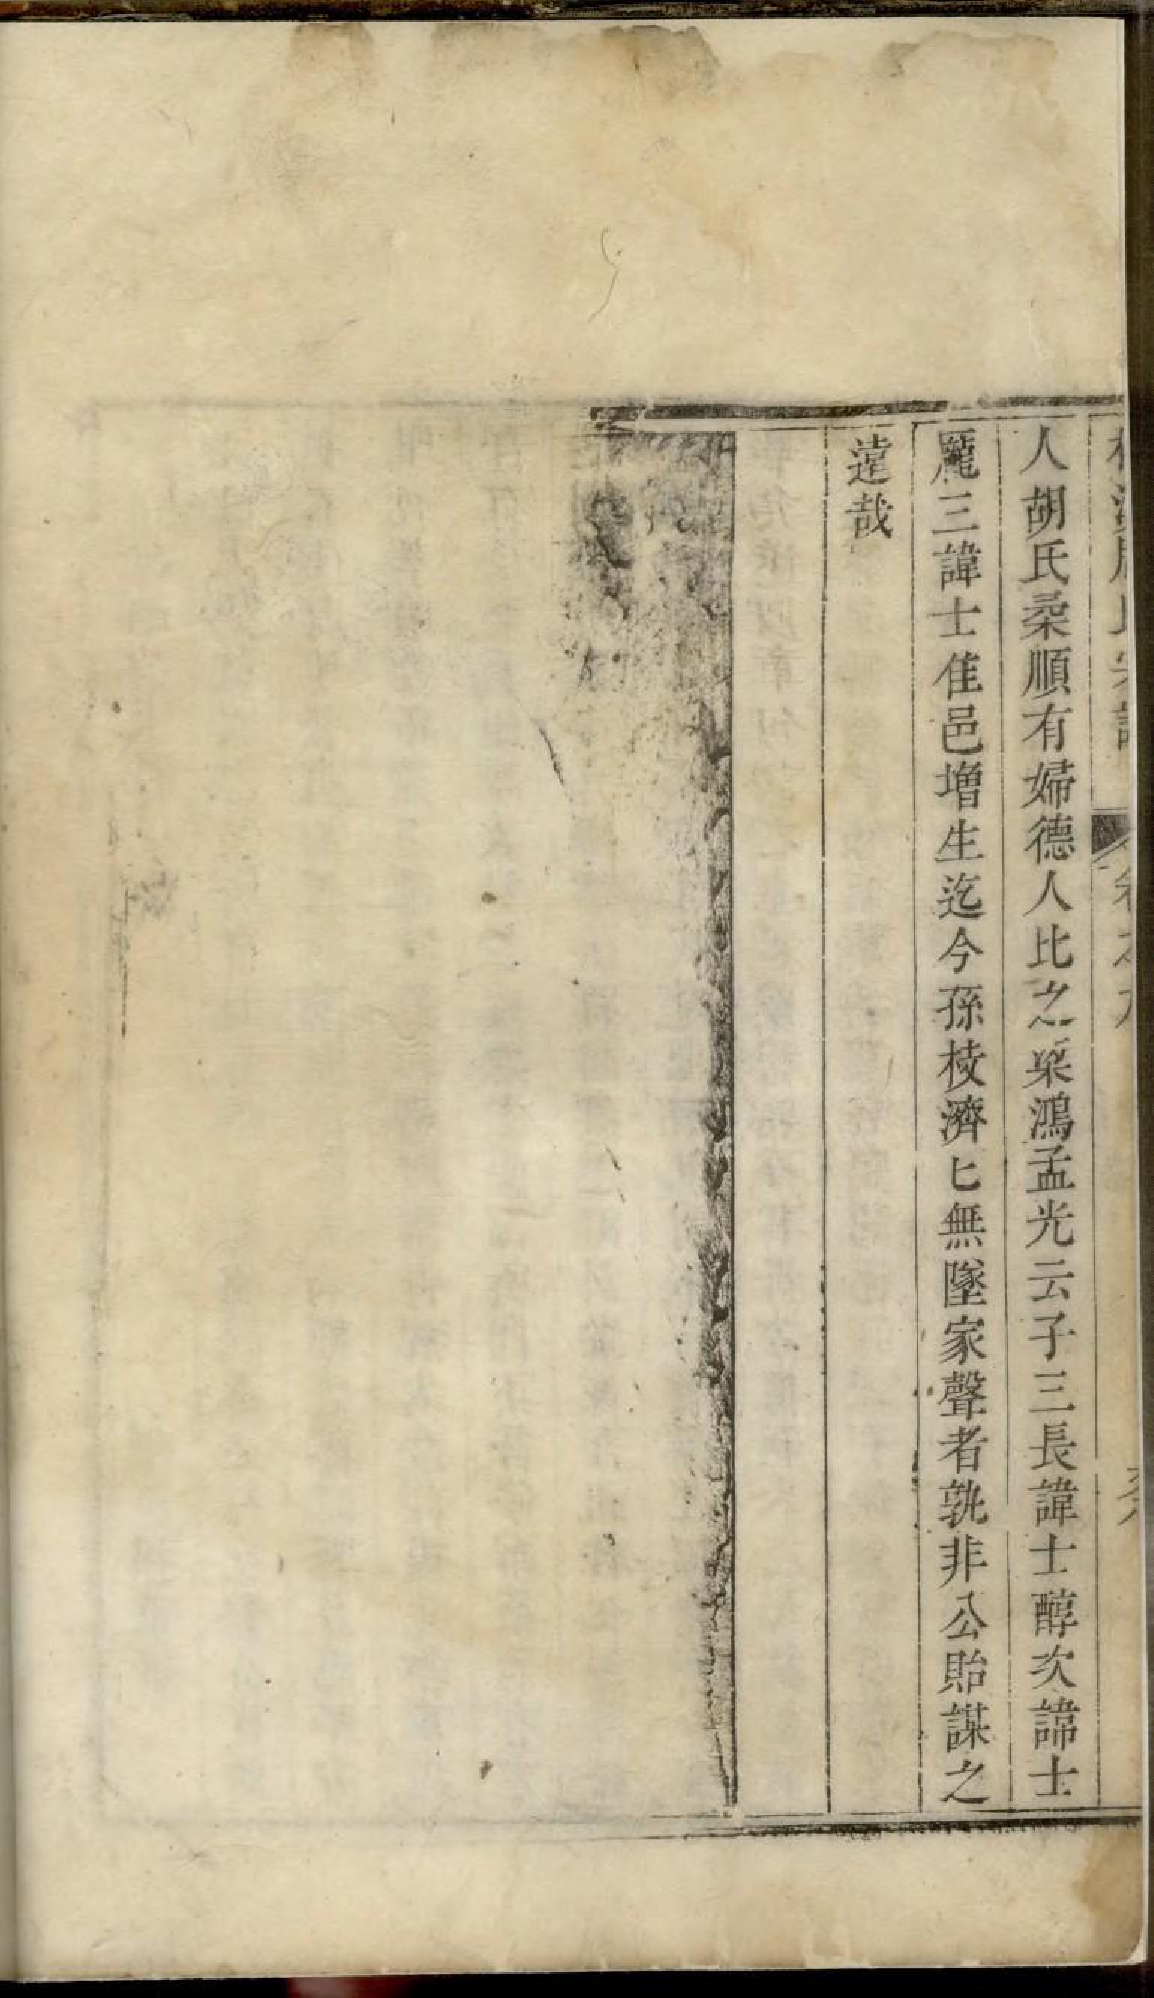 人胡氏柔順有婦德人比之梁鴻孟光云子三長諱士醇次諱士
龐三諱士隹邑增生迄今孫枝濟匕無墜家聲者孰非公貽謀之
遠哉